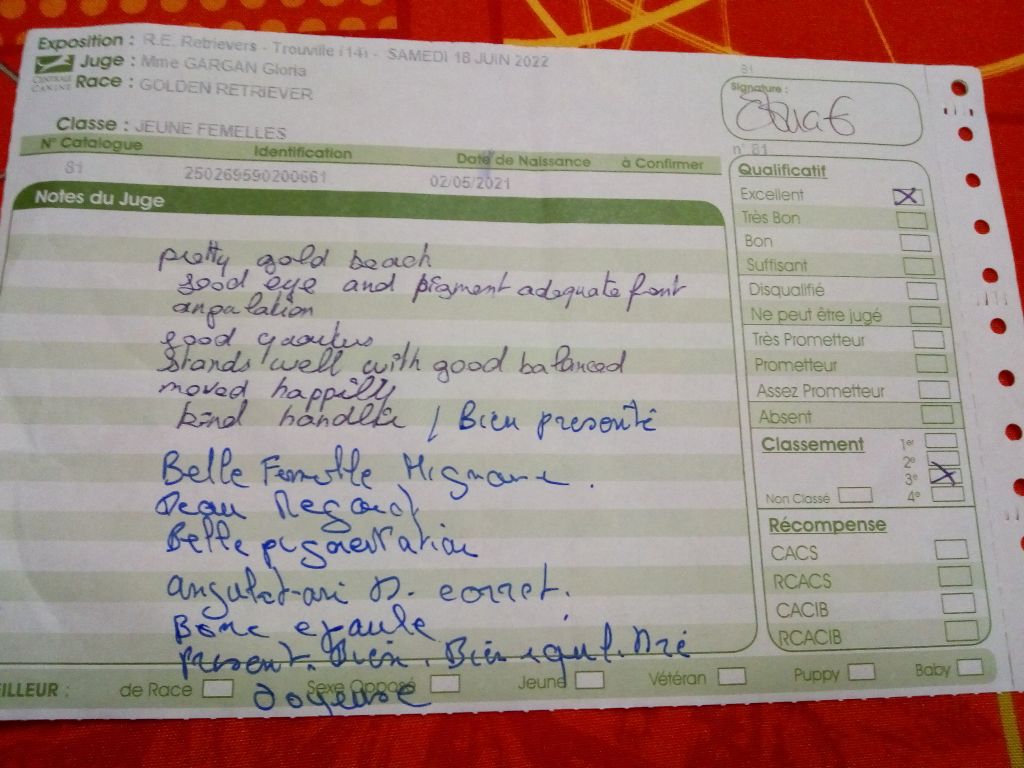 Exposition : R.E. Retrievers - Trouville (14) - SAMEDI 18 JUIN 2022
Juge : Mme GARGAN Gloria
CENTRALE CANINE
Race : GOLDEN RETRIEVER
Classe : JEUNE FEMELLES
N° Catalogue Identification Date de Naissance à Confirmer
81 250269590200661 02/05/2021
Notes du Juge
pretty gold beach
good eye and pigment adequate front
angulation
good quarters
Stands well with good balanced
moved happilly
kind handler / Bien presenté
Belle Femelle Mignonne.
Beau Regard
Belle pigmentation
angulation correct.
Bonne epaule
present. Bien. Bien equil.
Joyeuse
81
Signature :
n° 81
Qualificatif
Excellent
Très Bon
Bon
Suffisant
Disqualifié
Ne peut être jugé
Très Prometteur
Prometteur
Assez Prometteur
Absent
Classement 1er
2e
3e
Non Classé 4e
Récompense
CACS
RCACS
CACIB
RCACIB
EILLEUR : de Race Sexe Opposé Jeune Vétéran Puppy Baby